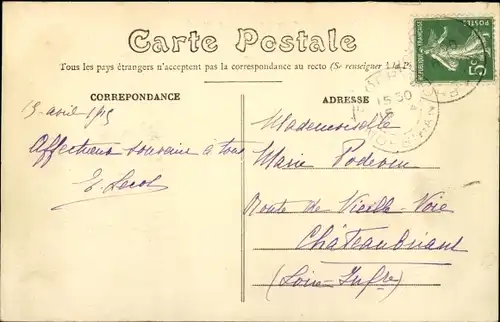 Carte Postale
Tous les pays étrangers n'acceptent pas la correspondance au recto (Se renseigner à la P
CORREPONDANCE
ADRESSE
15 avril 1915
Affectueux souvenir à tous
E. Lecoq
Mademoiselle
Marie Poderin
Route de Vieille-Voie
Châteaubriant
(Loire-Infre)
POSTES
5c
15 30